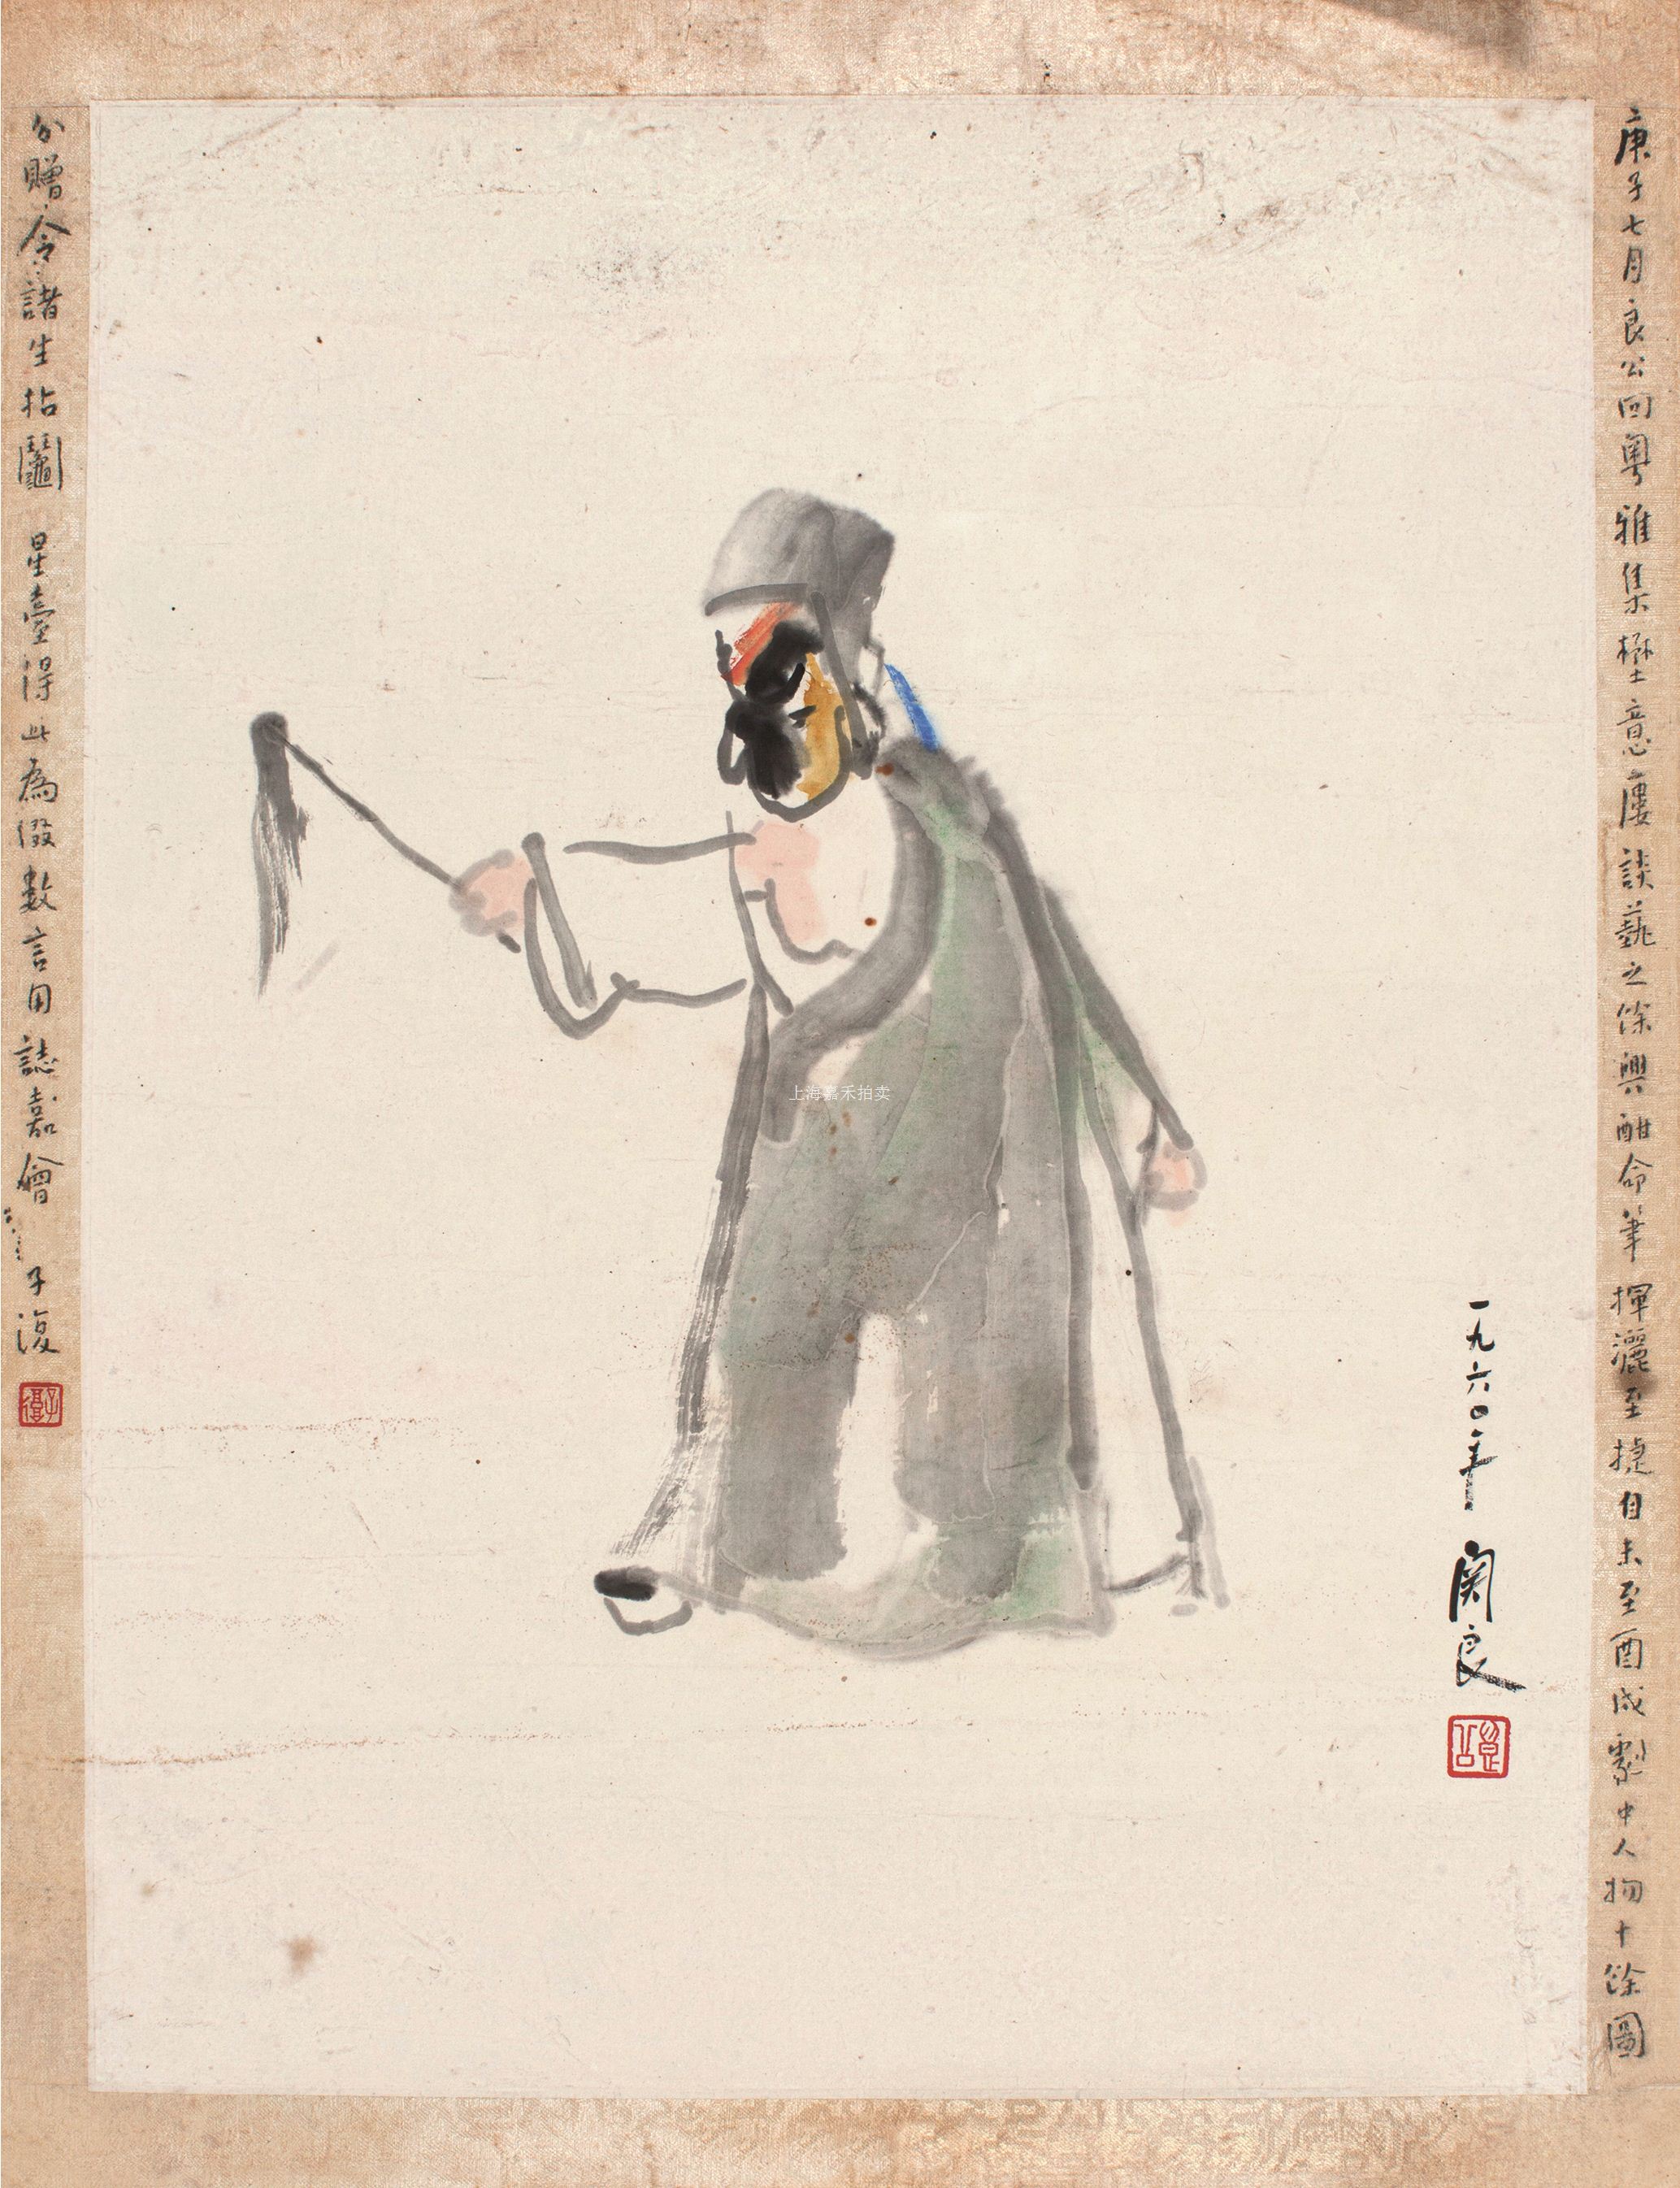 庚子七月良公回粤雅集壄意廔談藝之餘興酣命筆揮灑至捷自未至酉成劇中人物十餘圖
分贈令諸生拈鬮 星臺得此為綴數言用誌嘉會 子復
一九六〇年 関良
上海嘉禾拍卖